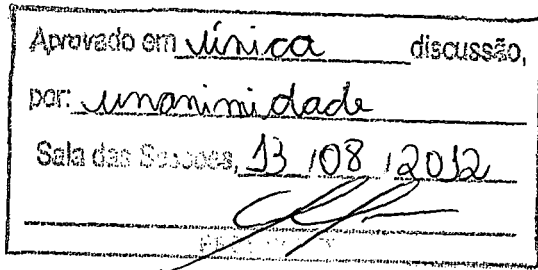 Aprovado em única discussão,
por: unanimidade
Sala das Sessões, 13 / 08 / 2012